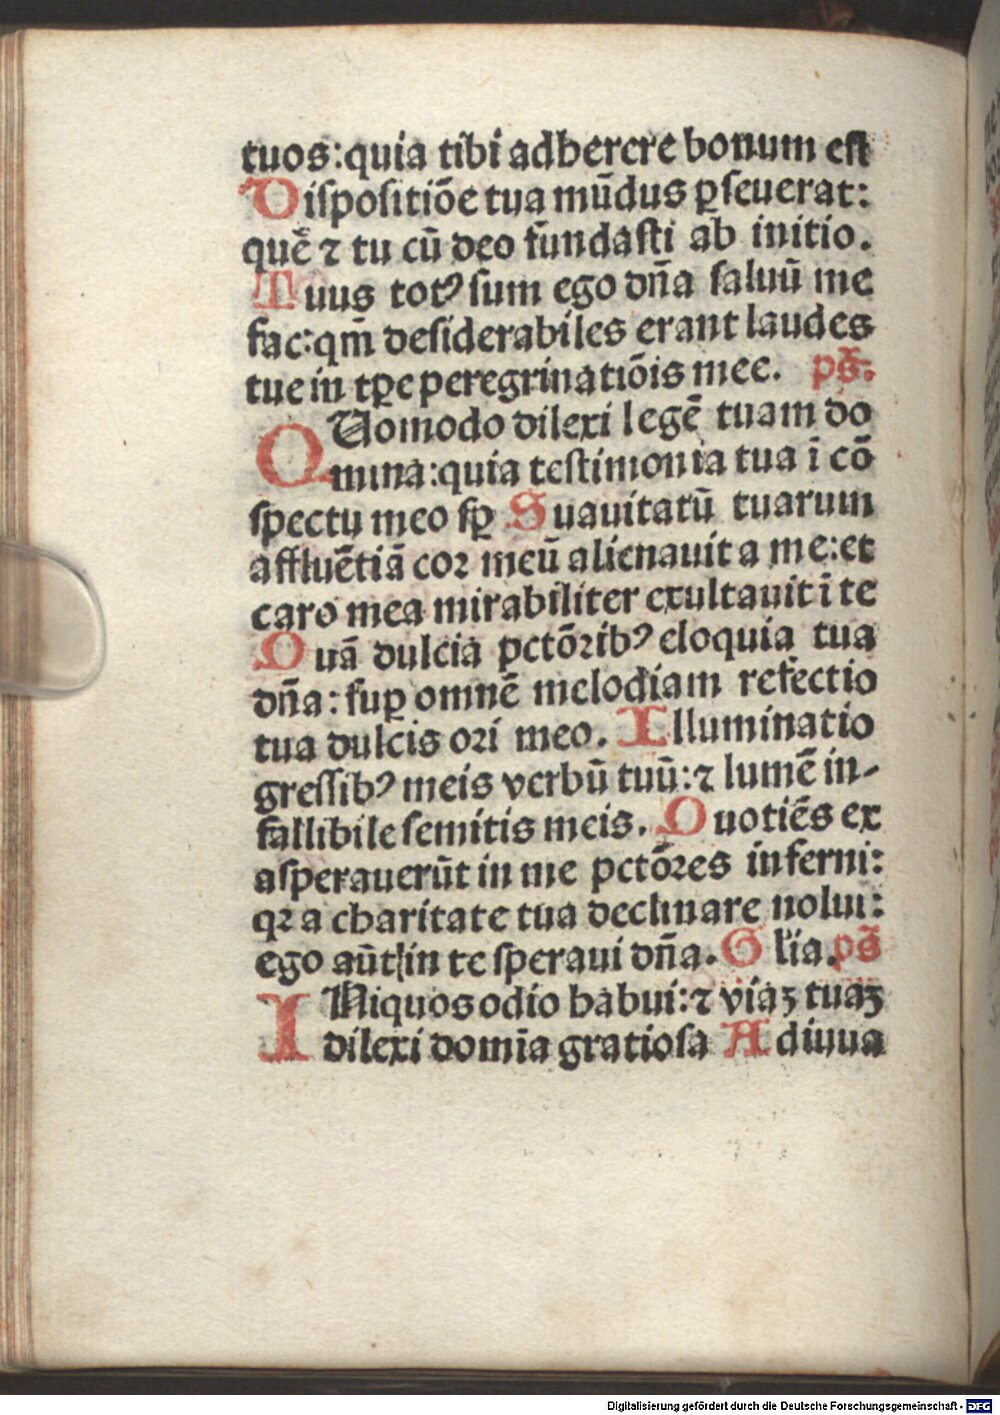 tuos:quia tibi adherere bonum est
Dispositiōe tua mūdus ꝑseuerat:
quē ⁊ tu cū deo fundasti ab initio.
Tuus totꝰ sum ego dn̄a saluū me
fac:qm̄ desiderabiles erant laudes
tue in tꝑe peregrinatiōis mee. ps̄.
QUomodo dilexi legē tuam do
mina:quia testimonia tua ī cō
spectu meo sꝑ Suauitatū tuarum
affluētiā cor meū alienauit a me:et
caro mea mirabiliter exultauit ī te
Quā dulcia pctōribꝰ eloquia tua
dn̄a:suꝑ omnē melodiam refectio
tua dulcis ori meo. Illuminatio
gressibꝰ meis verbū tuū:⁊ lumē in-
fallibile semitis meis. Quotiēs ex
asperauerūt in me pctōres inferni:
qꝛ a charitate tua declinare nolui:
ego aūt in te speraui dn̄a. Glīa. ps̄
INiquos odio habui:⁊ viaꝫ tuaꝫ
dilexi domīa gratiosa Adiuua
Digitalisierung gefördert durch die Deutsche Forschungsgemeinschaft - DFG